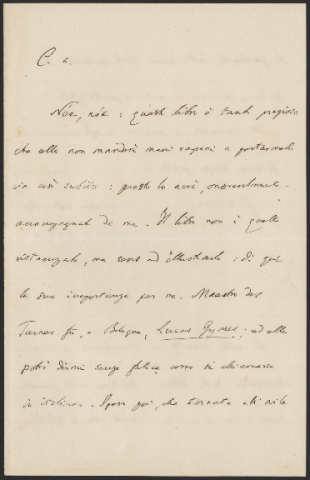 C. a.
Noe, noe: questo libro è tanto prezioso
che ella non manderà mani rapaci a portarmelo
via così subito: presto lo avrà, onorevolmente
accompagnato da me. Il libro non è quello
ma serve ad illustrarlo: di qui
la sua importanza per me. Maestro del
fu, a Bologna, Lucas ; ed ella
potrà dirmi senza fatica come si chiamasse
in italiano. Spero poi, che tornata